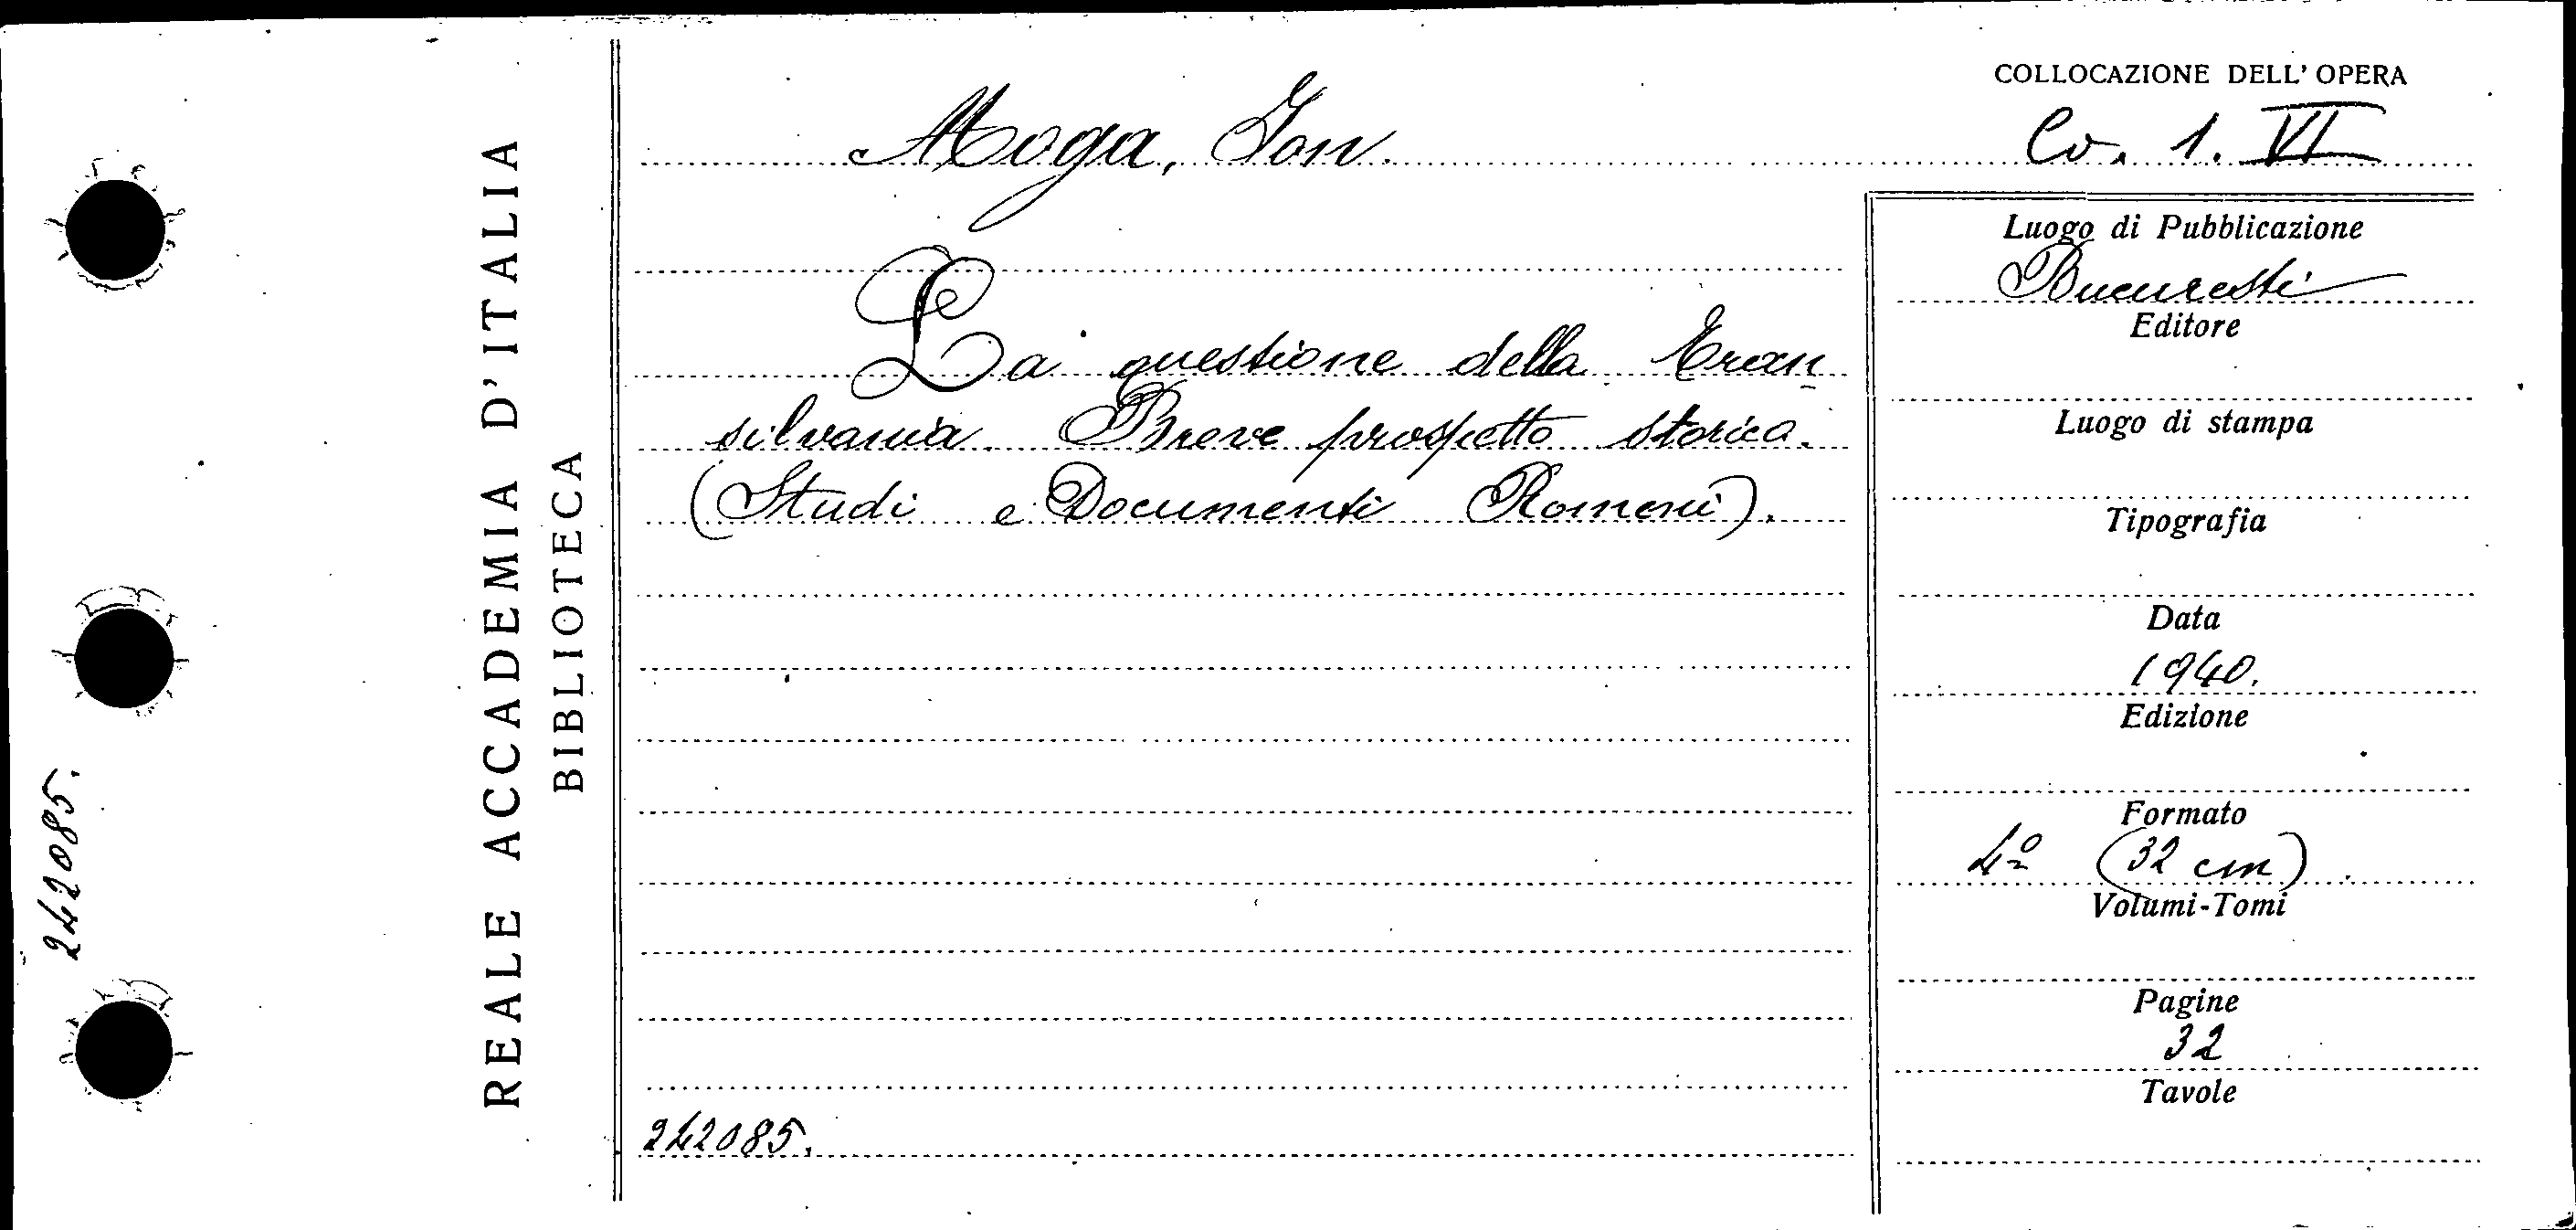 COLLOCAZIONE DELL' OPERA
Moga, Ion.
Co. 1. VI
REALE ACCADEMIA D'ITALIA
BIBLIOTECA
La questione della Tran-
silvania. Breve prospetto storico.
(Studi e Documenti Romeni).
242085.
242085.
Luogo di Pubblicazione
Bucuresti
Editore
Luogo di stampa
Tipografia
Data
1940.
Edizione
Formato
4º (32 cm).
Volumi-Tomi
Pagine
32
Tavole